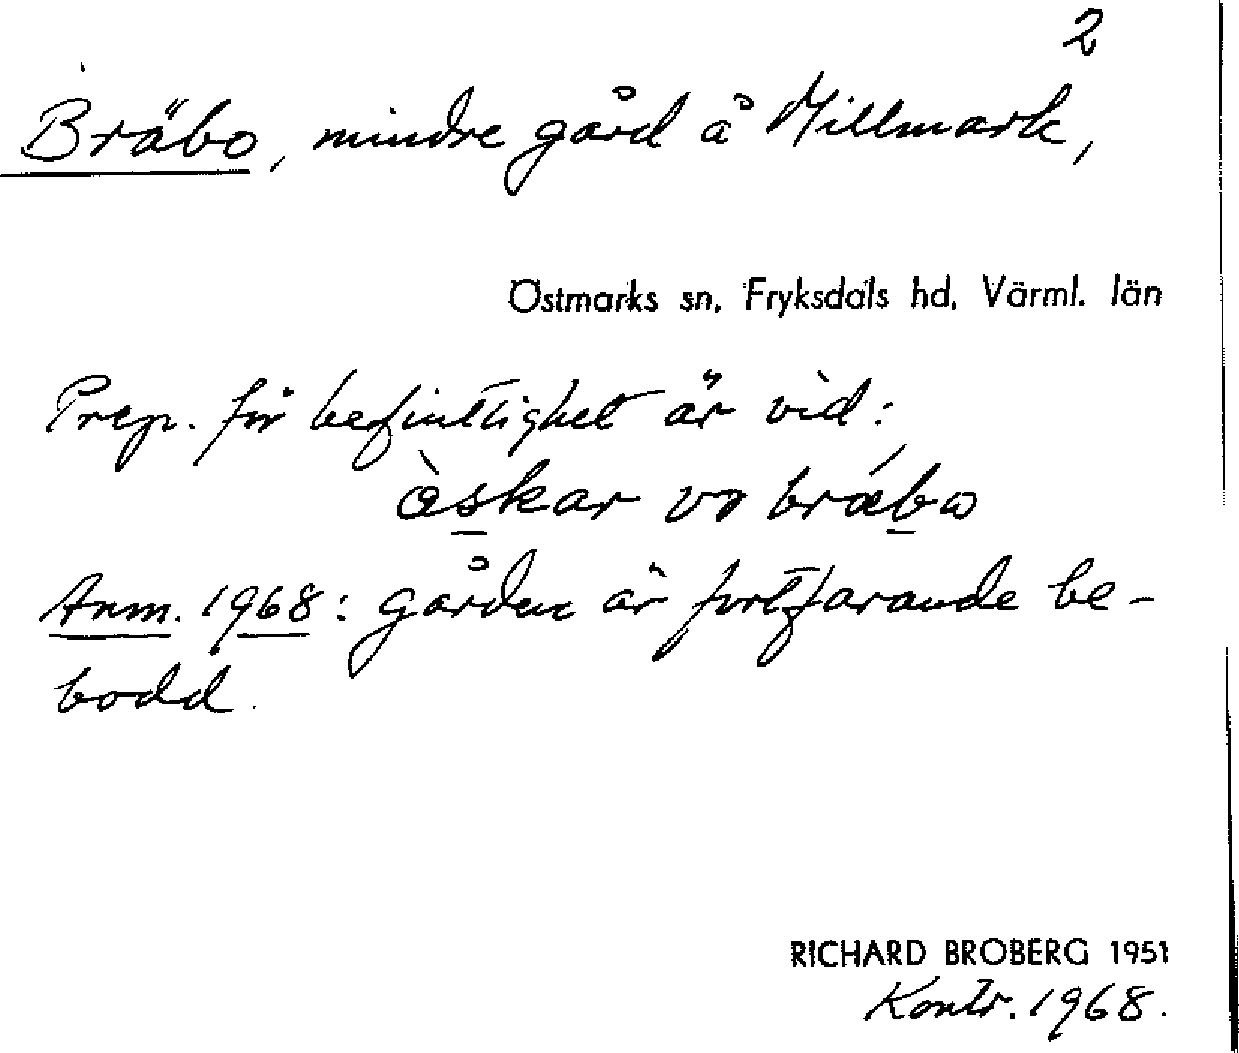 2
Bräbo, mindre gård å Millmark,
Östmarks sn, Fryksdals hd, Värml. län
Prep. för befintlighet är vid:
òskar vo bræ´bo
Anm. 1968: gården är fortfarande be-
bodd.
RICHARD BROBERG 1951
Kontr. 1968.